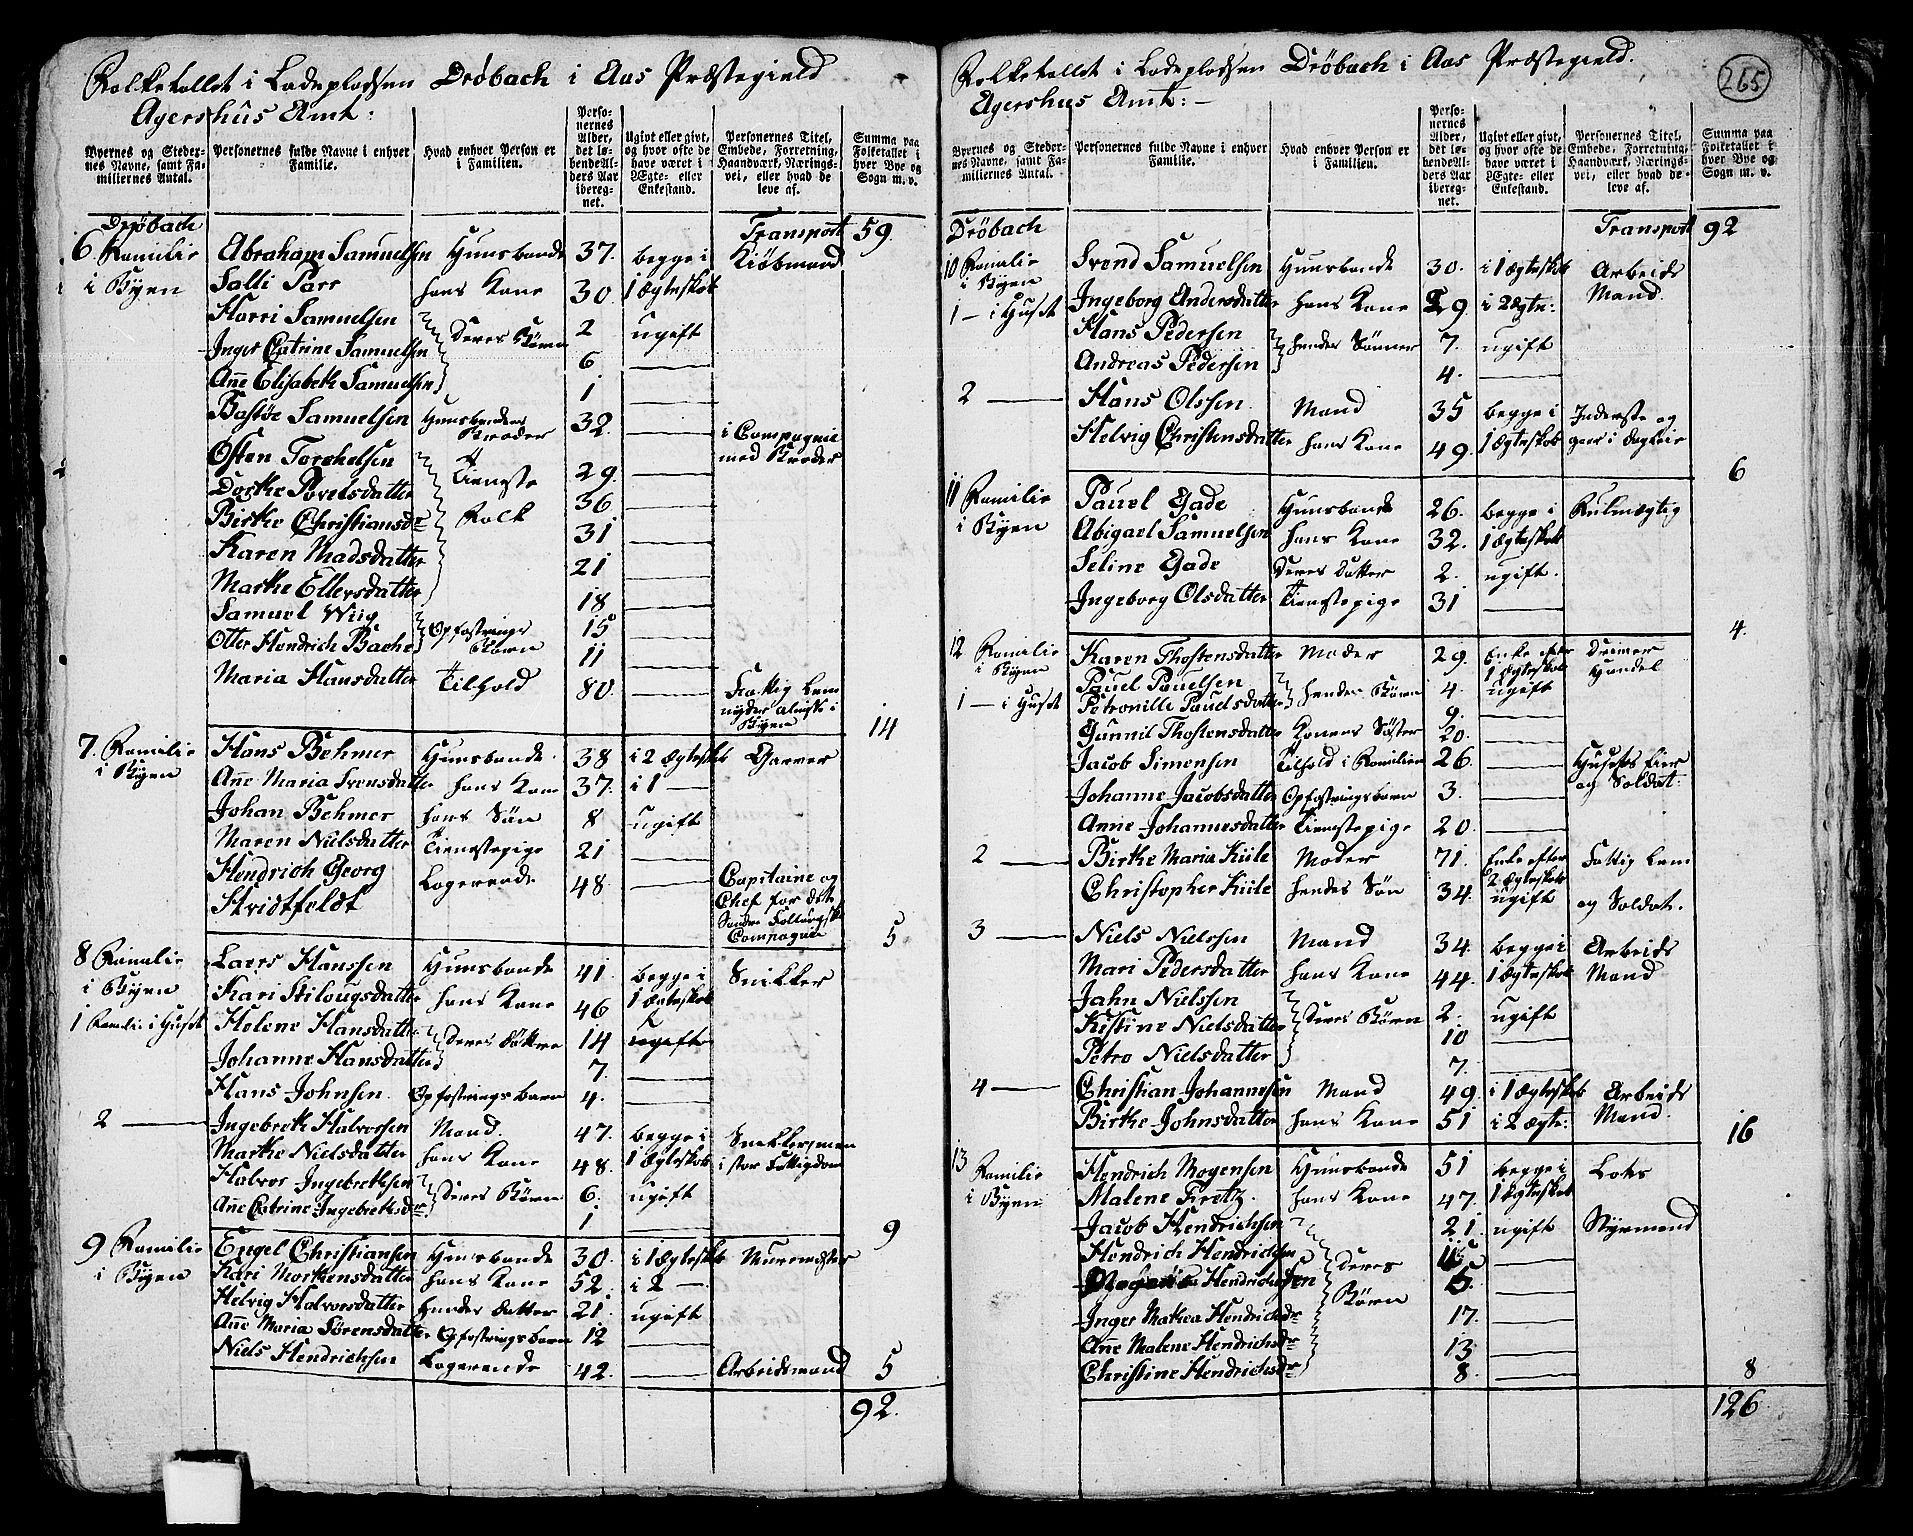 Folketallet i Ladepladsen Drøbach i Aas Præstegield
Agershus Amt:
Byernes og Stedernes Navne, samt Familiernes Antal.
Personernes fulde Navne i enhver Familie.
Hvad enhver Person er i Familien.
Personernes Alder, det løbende Alders Aar iberegnet.
Ugivt eller givt, og hvor ofte de have været i Ægte- eller Enkestand.
Personernes Titel, Embede, Forretning, Haandværk, Næringsvei, eller hvad de leve af.
Summa paa Folketallet i hver Bye og Sogn m. v.
Drøbach Transport 59.
6. Familie Abraham Samuelsen Huusbonde 37. begge i Kiøbmand
i Byen Salli Parr hans Kone 30. 1 ægteskab
Harri Samuelsen Deres Børn 2 ugift
Inger Catrine Samuelsen 6 —
Añe Elisabeth Samuelsen 1 —
Bastøe Samuelsen Huusbondens Broder 32. — i Compagnie med Broder
Osten Torchelsen Tieneste Folk 29. —
Dorthe Povelsdatter 36 —
Birthe Christiansdr 31 —
Karen Madsdatter 21 —
Marthe Ellersdatter 18 —
Samuel Wiig Opfostrings Børn 15 —
Otter Hendrich Bache 11 —
Maria Hansdatter Tilhold 80. — Fattig Lem nyder almisse i Byen
14
7. Familie i Byen Hans Behmer Huusbonde 38 i 2 ægteskab Garver
Añe Maria Svensdatter hans Kone 37. i 1 —
Johan Behmer hans Søn 8 ugift
Maren Nielsdatter Tienestepige 21 —
Hendrich Georg Stridtfeldt Logerende 48 — Capitaine og Chef for det Søndre Follougske Compagnie
5
8 Familie i Byen Laers Hanssen Huusbonde 41. begge i Snikker
Kari Stilougsdatter hans Kone 46 1 ægteskab
1 Familie i Huset Helene Hansdatter Deres Døttre 14 ugifte
Johanne Hansdatter 7. —
Hans Johnsen Opfostrings barn 4. —
2 — Ingebreth Halvorsen Mand 47. begge i Snikkersmen
Marthe Nielsdatter hans Kone 48. 1 ægteskab i stor Fattigdom
Halvor Ingebrethsen Deres Børn 6. ugift
Añe Catrine Ingebrethsdr 1 —
9
9 Familie i Byen Engel Christiansen Huusbonde 30. i 1 ægteskab Murmester
Kari Morthensdatter hans Kone 52. i 2 —
Helvig Halvorsdatter hendes Datter 21. ugift
Añe Maria Sørensdatter Opfostrings barn 12 —
Niels Hendrichsen Logerende 42. — Arbeidsmand 5
92.
265
Folketallet i Ladepladsen Drøbach i Aas Præstegield.
Agershus Amt: —
Byernes og Stedernes Navne, samt Familiernes Antal.
Personernes fulde Navne i enhver Familie.
Hvad enhver Person er i Familien.
Personernes Alder, det løbende Alders Aar iberegnet.
Ugivt eller givt, og hvor ofte de have været i Ægte- eller Enkestand.
Personernes Titel, Embede, Forretning, Haandværk, Næringsvei, eller hvad de leve af.
Summa paa Folketallet i hver Bye og Sogn m. v.
Drøbach Transport 92
10 Familie i Byen Svend Samuelsen Huusbonde 30. i 1 ægteskab Arbeids Mand
1 — i Huset Ingeborg Andersdatter hans Kone 29. i 2 ægte:
Hans Pedersen hendes Sønner 7. ugift
Andreas Pedersen 4. —
2 — Hans Olssen Mand 35 begge i Inderste og
Helvig Christensdatter hans Kone 49. 1 ægteskab gaar i dagleie
6
11 Familie i Byen Pauel Gade Huusbonde 26. begge i Fulmægtig
Abigael Samuelsen hans Kone 32. 1 ægteskab
Seline Gade Deres Datter 2. ugift.
Ingeborg Olsdatter Tienestepige 31 —
4.
12 Familie i Byen Karen Thostensdatter Moder 29. Enke efter 1 ægteskab Handel
1 — i Huset Pauel Pauelsen hendes Børn 4. ugift
Petronille Pauelsdatter 9. —
Gunnil Thostensdatter Konens Søster 20. —
Jacob Simensen Tilhold i Familien 26. — Husets Eier og Soldat.
Johanne Jacobsdatter Opfostringsbarn 3. —
Anne Johannesdatter Tienestepige 20. —
2 — Birthe Maria Kiile Moder 71. Enke efter 2 ægteskab Fattig Lem
Christopher Kiile hendes Søn 34. ugift og Soldat.
3 — Niels Nielssen Mand 34. begge i Arbeids
Mari Pedersdatter hans Kone 44. 1 ægteskab Mand
Jahn Nielssen Deres Børn 2. ugift
Kistine Nielsdatter 10 —
Petro Nielsdatter 7. —
4 — Christian Johannesen Mand 49. i 1 ægteskab Arbeids
Birthe Johnsdatter hans Kone 51 i 2 ægte: Mand.
16
13 Familie i Byen Hendrich Mogensen Huusbonde 51 begge i Lots
Malene Fretz. hans Kone 47. 1 ægteskab
Jacob Hendrichsen Deres Børn 21. ugift Styrmand
Hendrich Hendrichsen —
Hendrichsen —
Inger Mathea Hendrichsdr 17. —
Añe Malene Hendrichsdr 13 —
Christine Hendrichsdr 8. — 8
126